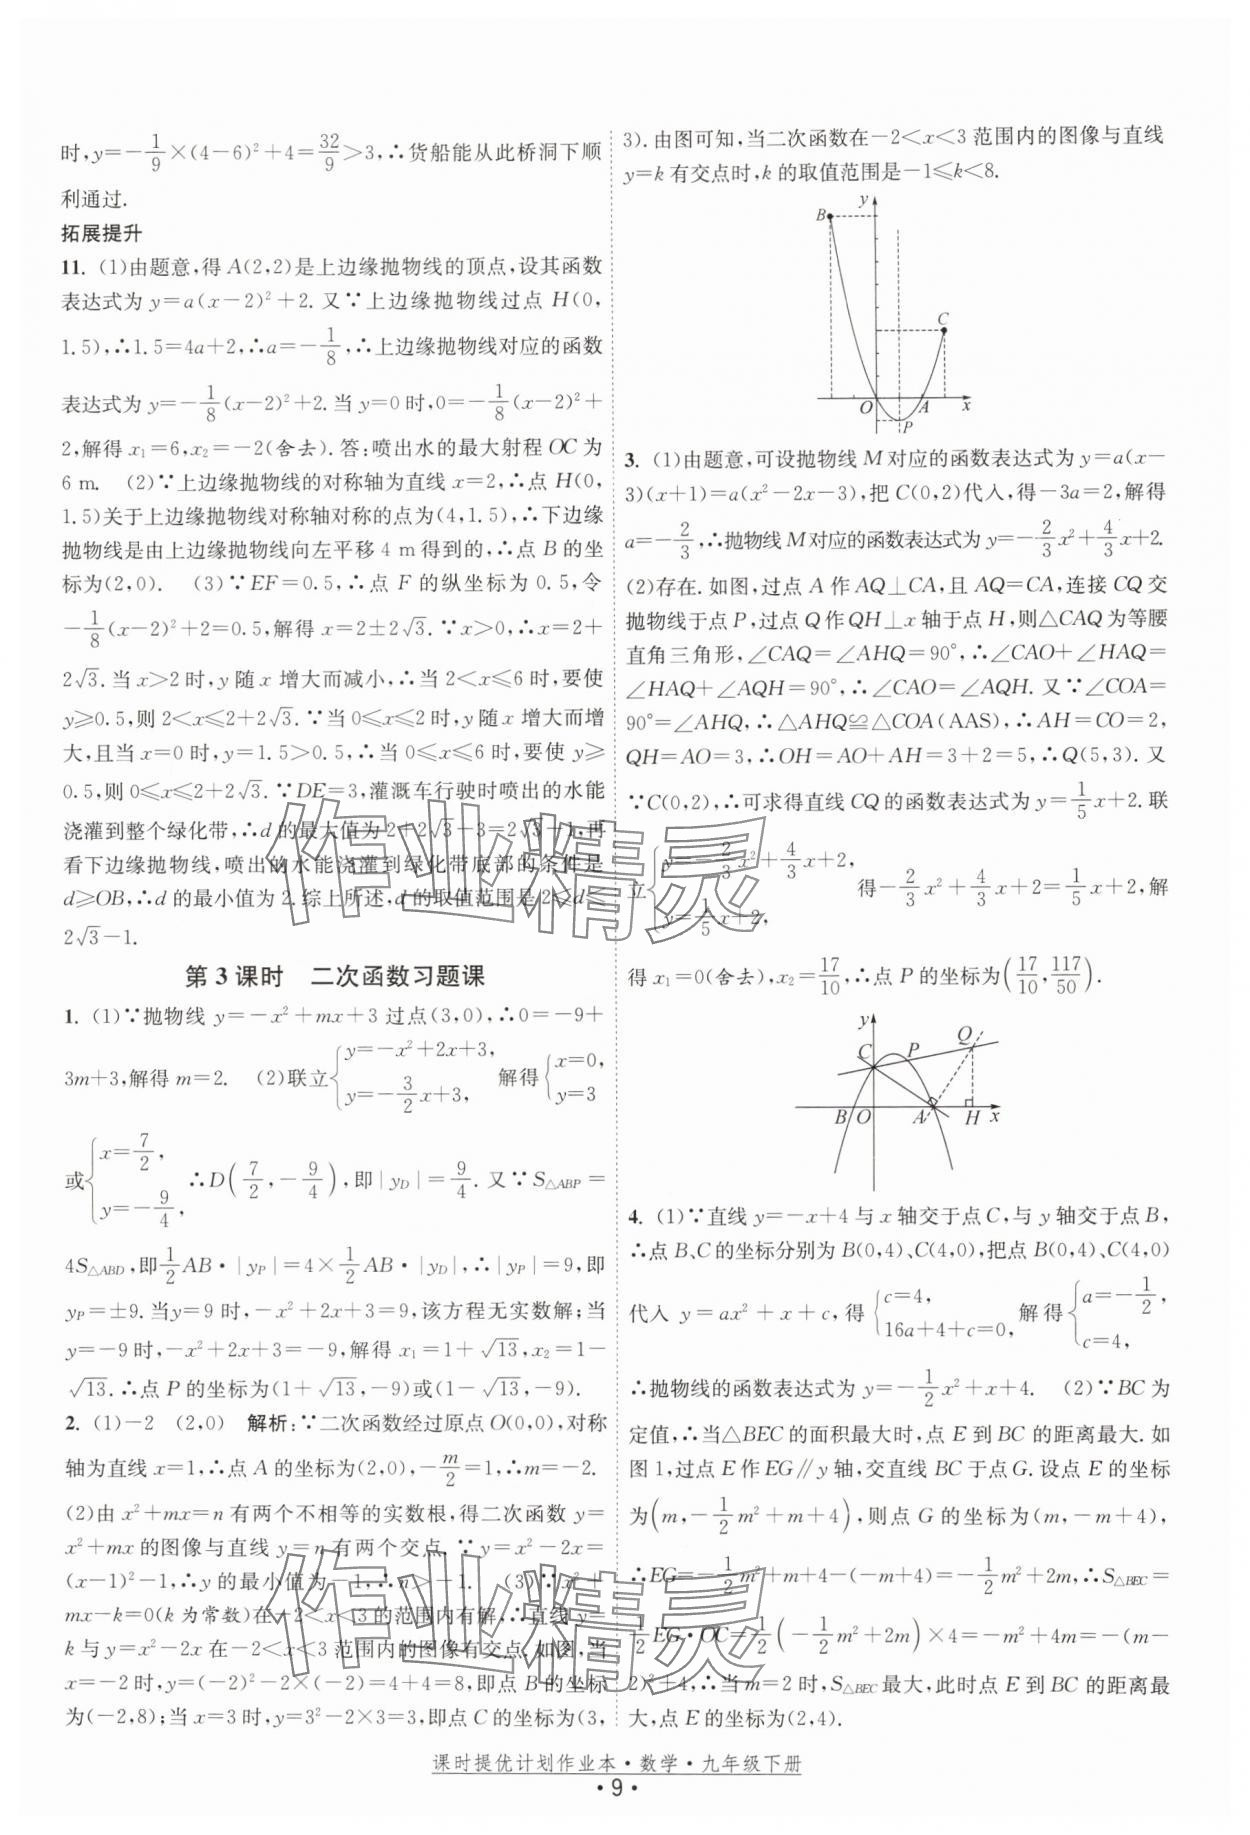 时,y=-1/9×(4-6)²+4=32/9>3,∴货船能从此桥洞下顺
利通过.
拓展提升
11. (1)由题意,得 A(2,2)是上边缘抛物线的顶点,设其函数
表达式为 y=a(x-2)²+2.又∵上边缘抛物线过点 H(0,
1.5),∴1.5=4a+2,∴a=-1/8,∴上边缘抛物线对应的函数
表达式为 y=-1/8(x-2)²+2.当 y=0时,0=-1/8(x-2)²+
2,解得 x₁=6,x₂=-2(舍去).答:喷出水的最大射程 OC 为
6 m. (2)∵上边缘抛物线的对称轴为直线 x=2,∴点 H(0,
1.5)关于上边缘抛物线对称轴对称的点为(4,1.5),∴下边缘
抛物线是由上边缘抛物线向左平移 4 m 得到的,∴点 B 的坐
标为(2,0). (3)∵EF=0.5,∴点 F 的纵坐标为 0.5,令
-1/8(x-2)²+2=0.5,解得 x=2±2√3.∵x>0,∴x=2+
2√3.当 x>2 时,y 随 x 增大而减小,∴当 2<x≤6 时,要使
y≥0.5,则 2<x≤2+2√3.∵当 0≤x≤2 时,y 随 x 增大而增
大,且当 x=0 时,y=1.5>0.5,∴当 0≤x≤6 时,要使 y≥
0.5,则 0≤x≤2+2√3.∵DE=3,灌溉车行驶时喷出的水能
浇灌到整个绿化带,∴d 的最大值为 2+2√3-3=2√3-1,再
看下边缘抛物线,喷出的水能浇灌到绿化带底部的条件是
d≥OB,∴d 的最小值为 2.综上所述,d 的取值范围是 2≤d≤
2√3-1.
第 3 课时 二次函数习题课
1. (1)∵抛物线 y=-x²+mx+3 过点(3,0),∴0=-9+
3m+3,解得 m=2. (2)联立{y=-x²+2x+3, y=-3/2x+3, 解得{x=0, y=3
或{x=7/2, y=-9/4, ∴D(7/2,-9/4),即|y_D|=9/4.又∵S△ABP=
4S△ABD,即1/2AB·|y_P|=4×1/2AB·|y_D|,∴|y_P|=9,即
y_P=±9.当y=9 时,-x²+2x+3=9,该方程无实数解;当
y=-9 时,-x²+2x+3=-9,解得 x₁=1+√13,x₂=1-
√13.∴点 P 的坐标为(1+√13,-9)或(1-√13,-9).
2. (1)-2 (2,0) 解析:∵二次函数经过原点 O(0,0),对称
轴为直线 x=1,∴点 A 的坐标为(2,0),-m/2=1,∴m=-2.
(2)由 x²+mx=n 有两个不相等的实数根,得二次函数 y=
x²+mx 的图像与直线 y=n 有两个交点.∵y=x²-2x=
(x-1)²-1,∴y 的最小值为-1,∴n>-1. (3)∵x²+
mx-k=0(k 为常数)在-2<x<3 的范围内有解,∴直线 y=
k 与 y=x²-2x 在-2<x<3 范围内的图像有交点.如图,当
x=-2 时,y=(-2)²-2×(-2)=4+4=8,即点 B 的坐标
为(-2,8);当 x=3 时,y=3²-2×3=3,即点 C 的坐标为(3,
3).由图可知,当二次函数在-2<x<3 范围内的图像与直线
y=k 有交点时,k 的取值范围是-1≤k<8.
y
B
C
O
A
x
P
3. (1)由题意,可设抛物线 M 对应的函数表达式为 y=a(x-
3)(x+1)=a(x²-2x-3),把 C(0,2)代入,得-3a=2,解得
a=-2/3,∴抛物线 M 对应的函数表达式为 y=-2/3x²+4/3x+2.
(2)存在.如图,过点 A 作 AQ⊥CA,且 AQ=CA,连接 CQ 交
抛物线于点 P,过点 Q 作 QH⊥x 轴于点 H,则△CAQ 为等腰
直角三角形,∠CAQ=∠AHQ=90°,∴∠CAO+∠HAQ=
∠HAQ+∠AQH=90°,∴∠CAO=∠AQH.又∵∠COA=
90°=∠AHQ,∴△AHQ≌△COA(AAS),∴AH=CO=2,
QH=AO=3,∴OH=AO+AH=3+2=5,∴Q(5,3).又
∵C(0,2),∴可求得直线 CQ 的函数表达式为 y=1/5x+2.联
立{y=-2/3x²+4/3x+2, y=1/5x+2, 得-2/3x²+4/3x+2=1/5x+2,解
得 x₁=0(舍去),x₂=17/10,∴点 P 的坐标为(17/10,117/50).
y
Q
C
P
B
O
A
H
x
4. (1)∵直线 y=-x+4 与 x 轴交于点 C,与 y 轴交于点 B,
∴点 B、C 的坐标分别为 B(0,4)、C(4,0),把点 B(0,4)、C(4,0)
代入 y=ax²+x+c,得{c=4, 16a+4+c=0, 解得{a=-1/2, c=4,
∴抛物线的函数表达式为 y=-1/2x²+x+4. (2)∵BC 为
定值,∴当△BEC 的面积最大时,点 E 到 BC 的距离最大.如
图 1,过点 E 作 EG∥y 轴,交直线 BC 于点 G.设点 E 的坐标
为(m,-1/2m²+m+4),则点 G 的坐标为(m,-m+4),
∴EG=-1/2m²+m+4-(-m+4)=-1/2m²+2m,∴S△BEC=
1/2EG·OC=1/2(-1/2m²+2m)×4=-m²+4m=-(m-
2)²+4,∴当 m=2 时,S△BEC 最大,此时点 E 到 BC 的距离最
大,点 E 的坐标为(2,4).
作业精灵
作业精灵
课时提优计划作业本·数学·九年级下册
·9·